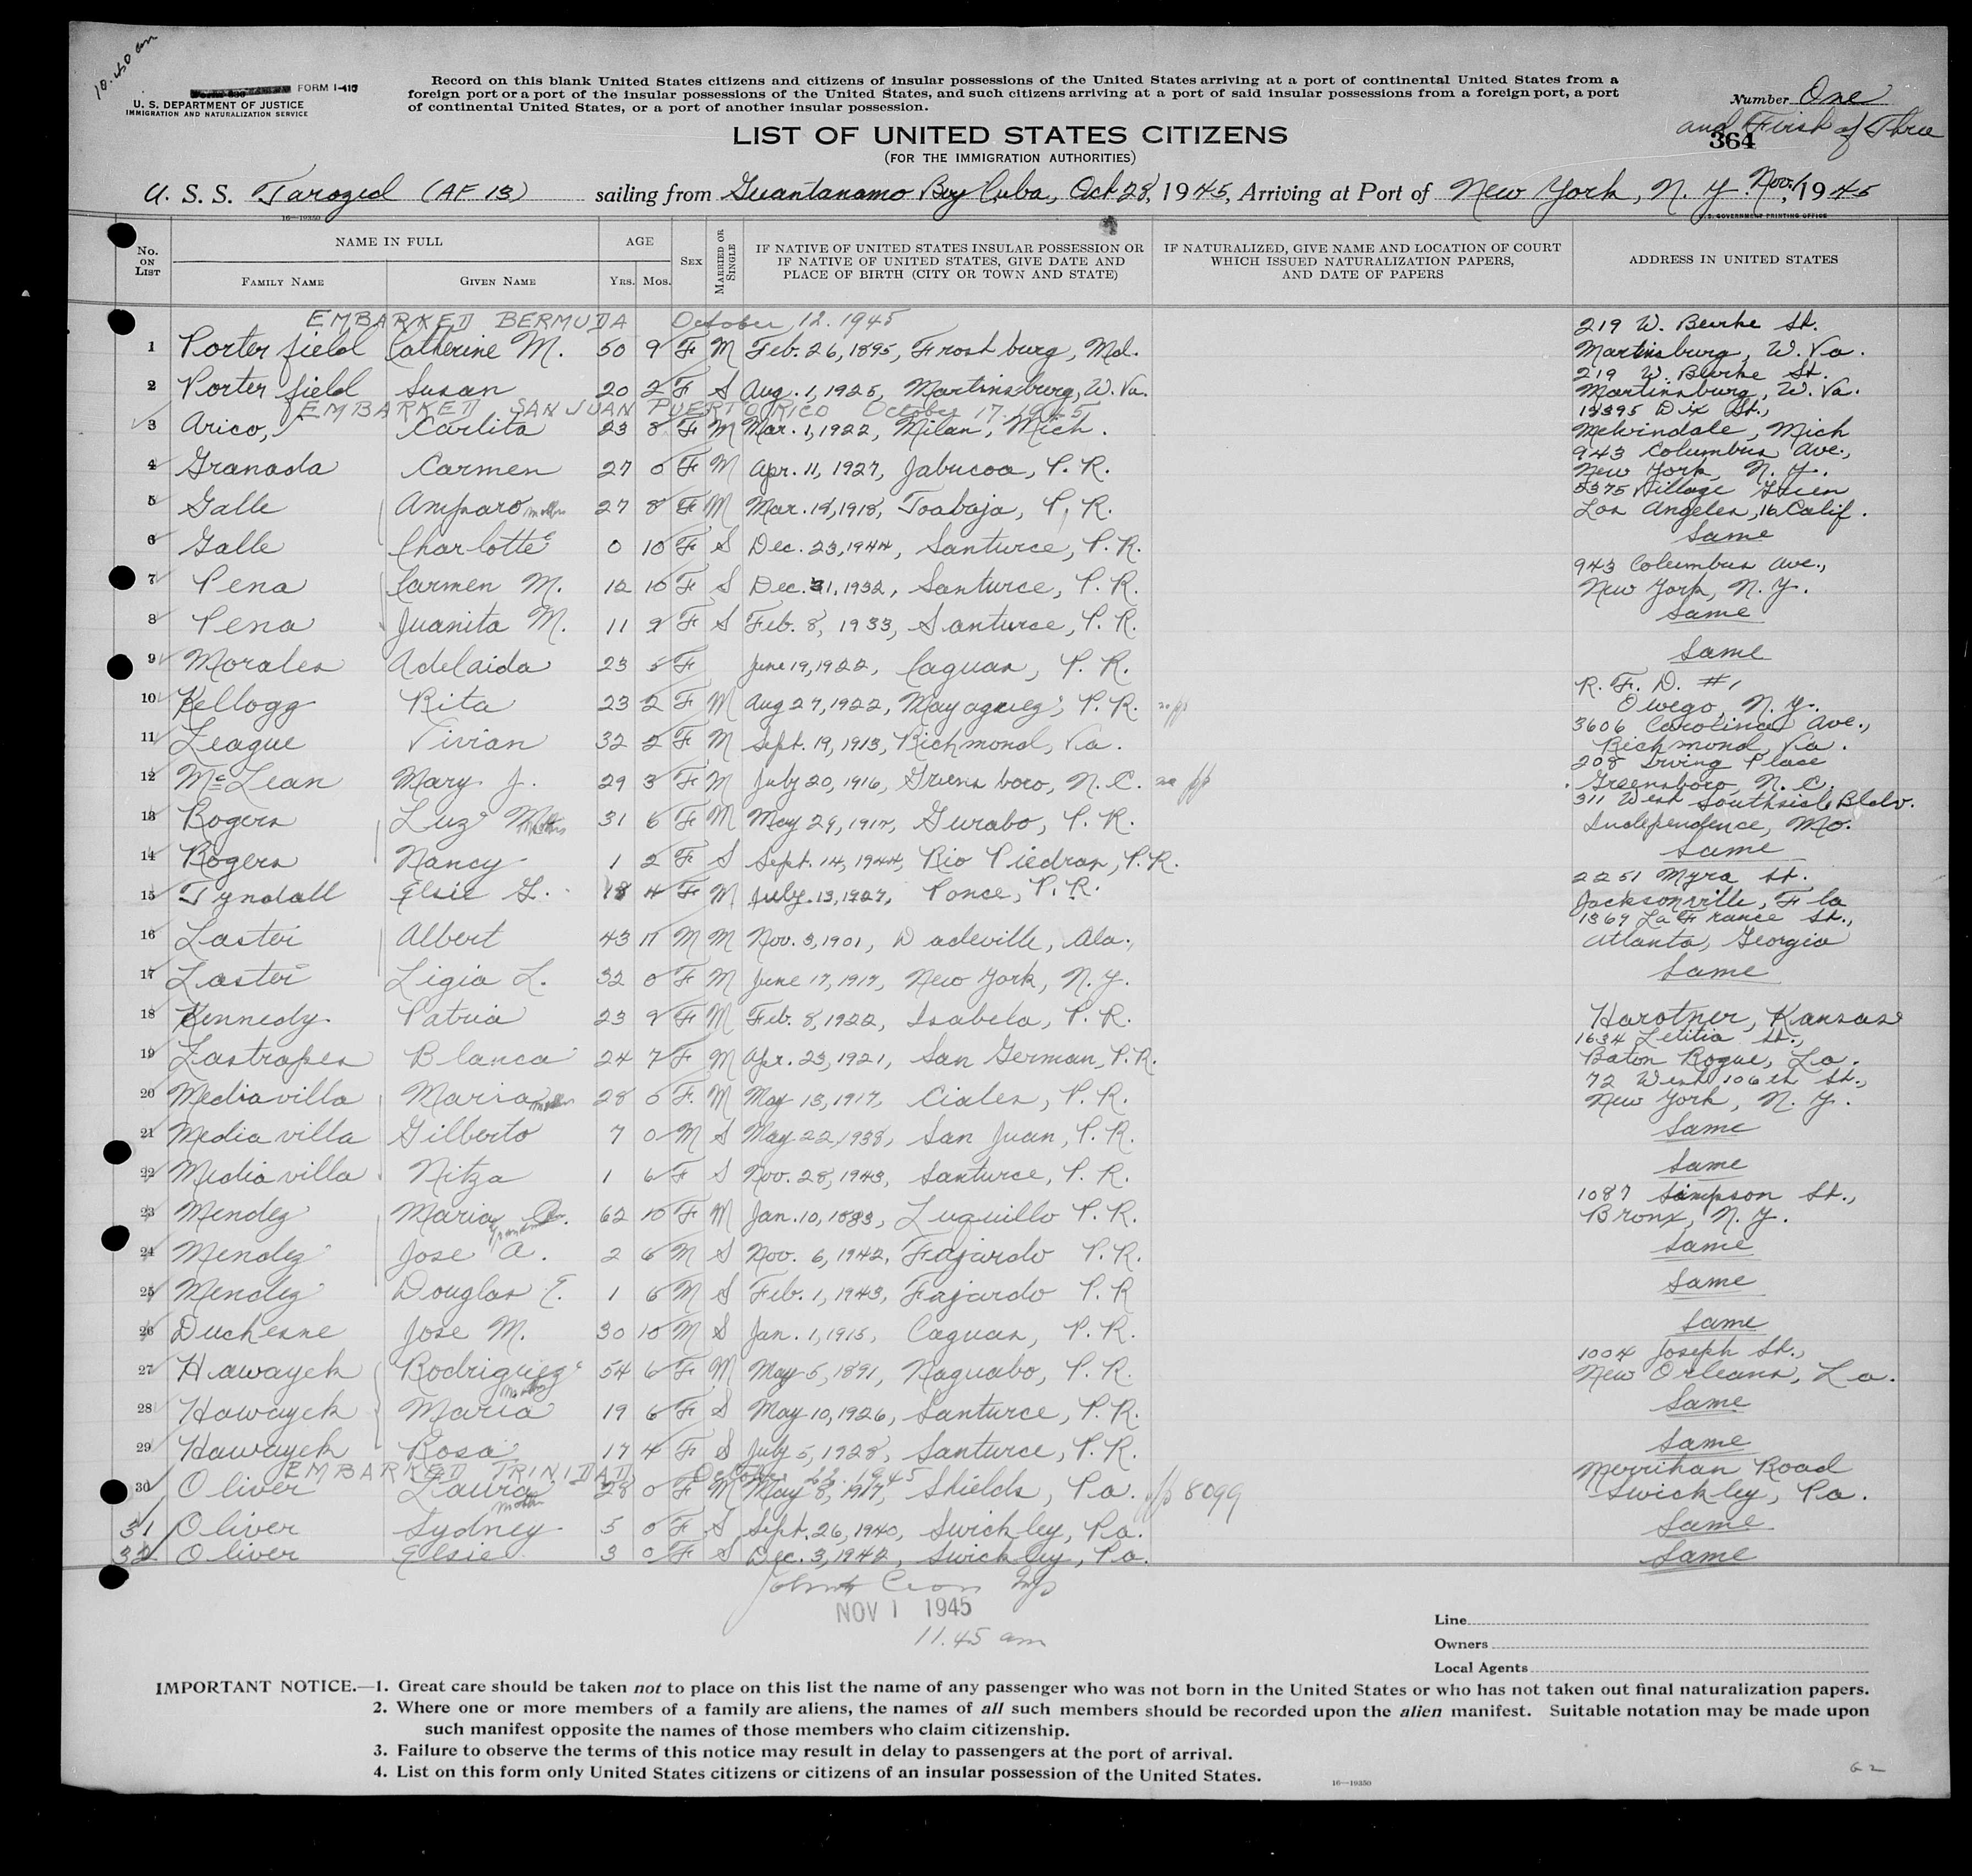 10.40 am
FORM I-415
U. S. DEPARTMENT OF JUSTICE
IMMIGRATION AND NATURALIZATION SERVICE
Record on this blank United States citizens and citizens of insular possessions of the United States arriving at a port of continental United States from a
foreign port or a port of the insular possessions of the United States, and such citizens arriving at a port of said insular possessions from a foreign port, a port
of continental United States, or a port of another insular possession.
Number One
and First of Three
364
LIST OF UNITED STATES CITIZENS
(FOR THE IMMIGRATION AUTHORITIES)
U. S. S. Tarazed (AF 13) sailing from Guantanamo Bay Cuba, Oct 28, 1945, Arriving at Port of New York, N. Y. Nov. 1, 1945
16—19350
U. S. GOVERNMENT PRINTING OFFICE
No. ON LIST
NAME IN FULL
FAMILY NAME
GIVEN NAME
AGE
YRS.
MOS.
SEX
MARRIED OR SINGLE
IF NATIVE OF UNITED STATES INSULAR POSSESSION OR
IF NATIVE OF UNITED STATES, GIVE DATE AND
PLACE OF BIRTH (CITY OR TOWN AND STATE)
IF NATURALIZED, GIVE NAME AND LOCATION OF COURT
WHICH ISSUED NATURALIZATION PAPERS,
AND DATE OF PAPERS
ADDRESS IN UNITED STATES
EMBARKED BERMUDA October 12. 1945
219 W. Burke St.
1 Porterfield Catherine M. 50 9 F M Feb. 26, 1895, Frostburg, Md. Martinsburg, W. Va.
219 W. Burke St.
2 Porterfield Susan 20 2 F S Aug. 1, 1925, Martinsburg, W. Va. Martinsburg, W. Va.
EMBARKED SAN JUAN PUERTO RICO October 17. 1945
13395 Dix St.,
3 Arico, Carlita 23 8 F M Mar. 1, 1922, Milan, Mich. Melvindale, Mich
943 Columbus Ave.,
4 Granada Carmen 27 0 F M Apr. 11, 1927, Jabucoa, P. R. New York, N. Y.
5375 Village Green
5 Galle Amparo mother 27 8 F M Mar. 18, 1918, Toabaja, P. R. Los Angeles, 16 Calif.
6 Galle Charlotte 0 10 F S Dec. 23, 1944, Santurce, P. R. Same
943 Columbus Ave.,
7 Pena Carmen M. 12 10 F S Dec. 31, 1932, Santurce, P. R. New York, N. Y.
8 Pena Juanita M. 11 9 F S Feb. 8, 1933, Santurce, P. R. Same
9 Morales Adelaida 23 5 F June 19, 1922, Caguas, P. R. Same
R. F. D. #1
10 Kellogg Rita 23 2 F M Aug 27, 1922, Mayaguez, P. R. no pp Owego, N. Y.
3606 Carolina Ave.,
11 League Vivian 32 2 F M Sept. 19, 1913, Richmond, Va. Richmond, Va.
208 Irving Place
12 McLean Mary J. 29 3 F M July 20, 1916, Greensboro, N. C. no pp Greensboro, N. C.
311 West Southside Bldv.
13 Rogers Luz M. mother 31 6 F M May 29, 1914, Gurabo, P. R. Independence, Mo.
14 Rogers Nancy 1 2 F S Sept. 14, 1944, Rio Piedras, P. R. Same
2251 Myra St.
15 Tyndall Elsie G. 18 4 F M July 13, 1927, Ponce, P. R. Jacksonville, Fla
1369 La France St.,
16 Laster Albert 43 11 M M Nov. 3, 1901, Dadeville, Ala., Atlanta, Georgia
17 Laster Ligia L. 32 0 F M June 17, 1917, New York, N. Y. Same
18 Kennedy Patria 23 9 F M Feb. 8, 1922, Isabela, P. R. Harotner, Kansas
1634 Letitia St.,
19 Lastrapes Blanca 24 7 F M Apr. 23, 1921, San German, P. R. Baton Rogue, La.
72 West 106th St.,
20 Mediavilla Maria mother 28 5 F. M May 13, 1917, Ciales, P. R. New York, N. Y.
21 Mediavilla Gilberto 7 0 M S May 22, 1938, San Juan, P. R. Same
22 Mediavilla Nitza 1 6 F S Nov. 28, 1943, Santurce, P. R. Same
1087 Simpson St.,
23 Mendez Maria grandmother 62 10 F M Jan. 10, 1883, Luquillo P. R. Bronx, N. Y.
24 Mendez Jose A. 2 6 M S Nov. 6, 1942, Fajardo P. R. Same
25 Mendez Douglas E. 1 6 M S Feb. 1, 1943, Fajardo P. R Same
26 Duchesne Jose M. 30 10 M S Jan. 1, 1915, Caguas, P. R. Same
1004 Joseph St.,
27 Hawayek Rodriguez mother 54 6 F M May 5, 1891, Naguabo, P. R. New Orleans, La.
28 Hawayek Maria 19 6 F S May 10, 1926, Santurce, P. R. Same
29 Hawayek Rosa 17 4 F S July 5, 1928, Santurce, P. R. Same
EMBARKED TRINIDAD October 22. 1945
Merrihan Road
30 Oliver Laura mother 28 0 F M May 8, 1917, Shields, Pa. pp 8099 Swickley, Pa.
31 Oliver Sydney 5 0 F S Sept. 26, 1940, Swickley, Pa. Same
32 Oliver Elsie 3 0 F S Dec. 3, 1942, Swickley, Pa. Same
NOV 1 1945
11.45 am
Line
Owners
Local Agents
IMPORTANT NOTICE.—1. Great care should be taken not to place on this list the name of any passenger who was not born in the United States or who has not taken out final naturalization papers.
2. Where one or more members of a family are aliens, the names of all such members should be recorded upon the alien manifest. Suitable notation may be made upon
such manifest opposite the names of those members who claim citizenship.
3. Failure to observe the terms of this notice may result in delay to passengers at the port of arrival.
4. List on this form only United States citizens or citizens of an insular possession of the United States.
16—19350
G 2